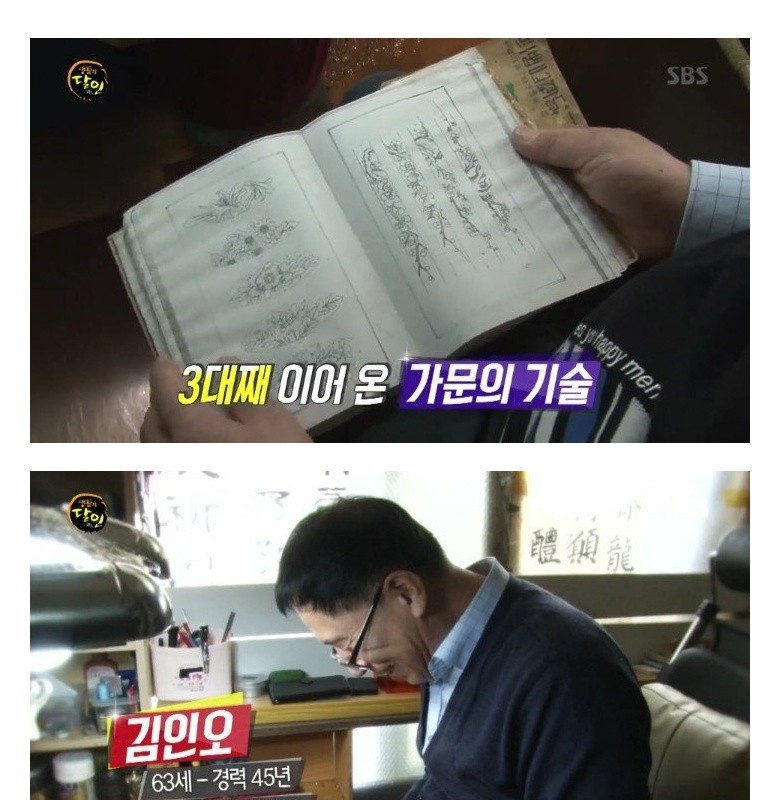 생활의
달인
SBS
es you happy mer
3대째 이어 온 가문의 기술
생활의
달인
醴 顚 龍
김인오
63세 – 경력 45년